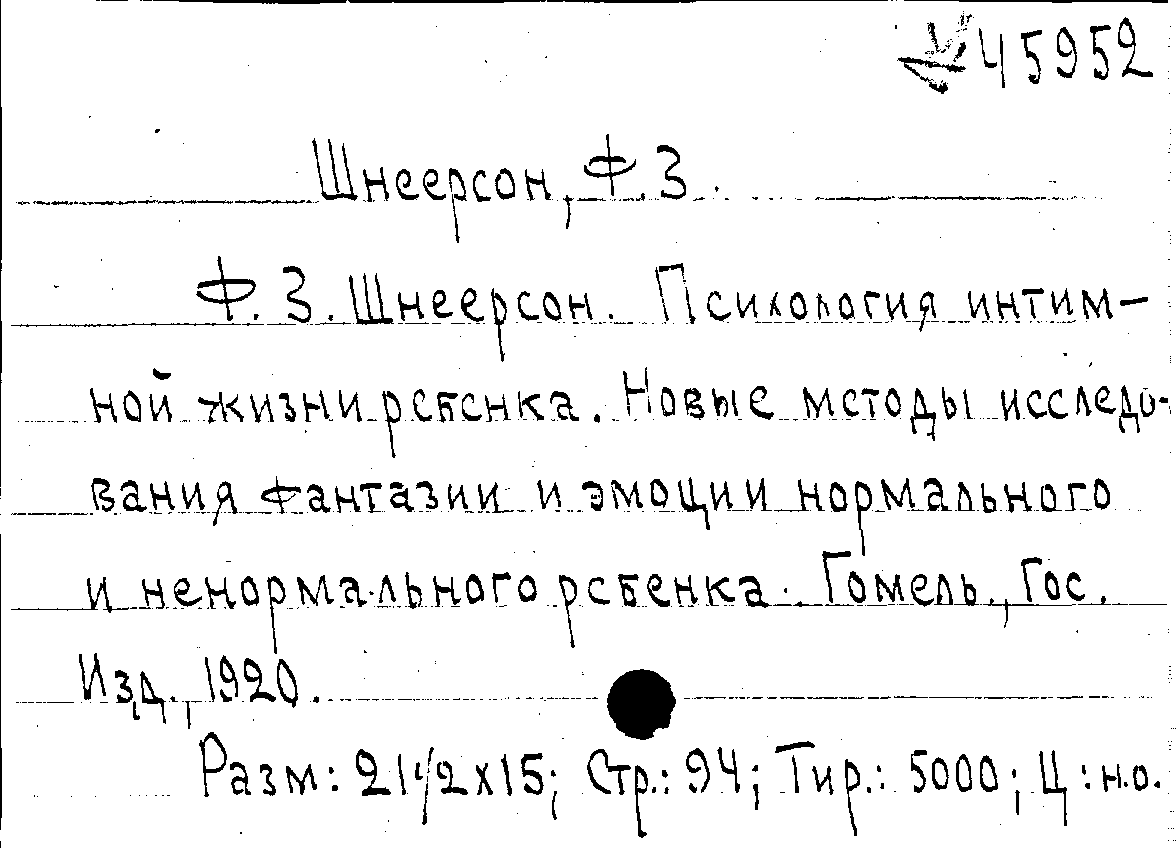 45952
Шнеерсон, Ф.З.
Ф. З. Шнеерсон. Психология интим-
ной жизни ребенка. Новые методы исследо-
вания фантазии и эмоции нормального
и ненормального ребенка. Гомель., Гос.
Изд., 1920.
Разм: 21½х15; Стр.: 94; Тир.: 5000; Ц: н.о.